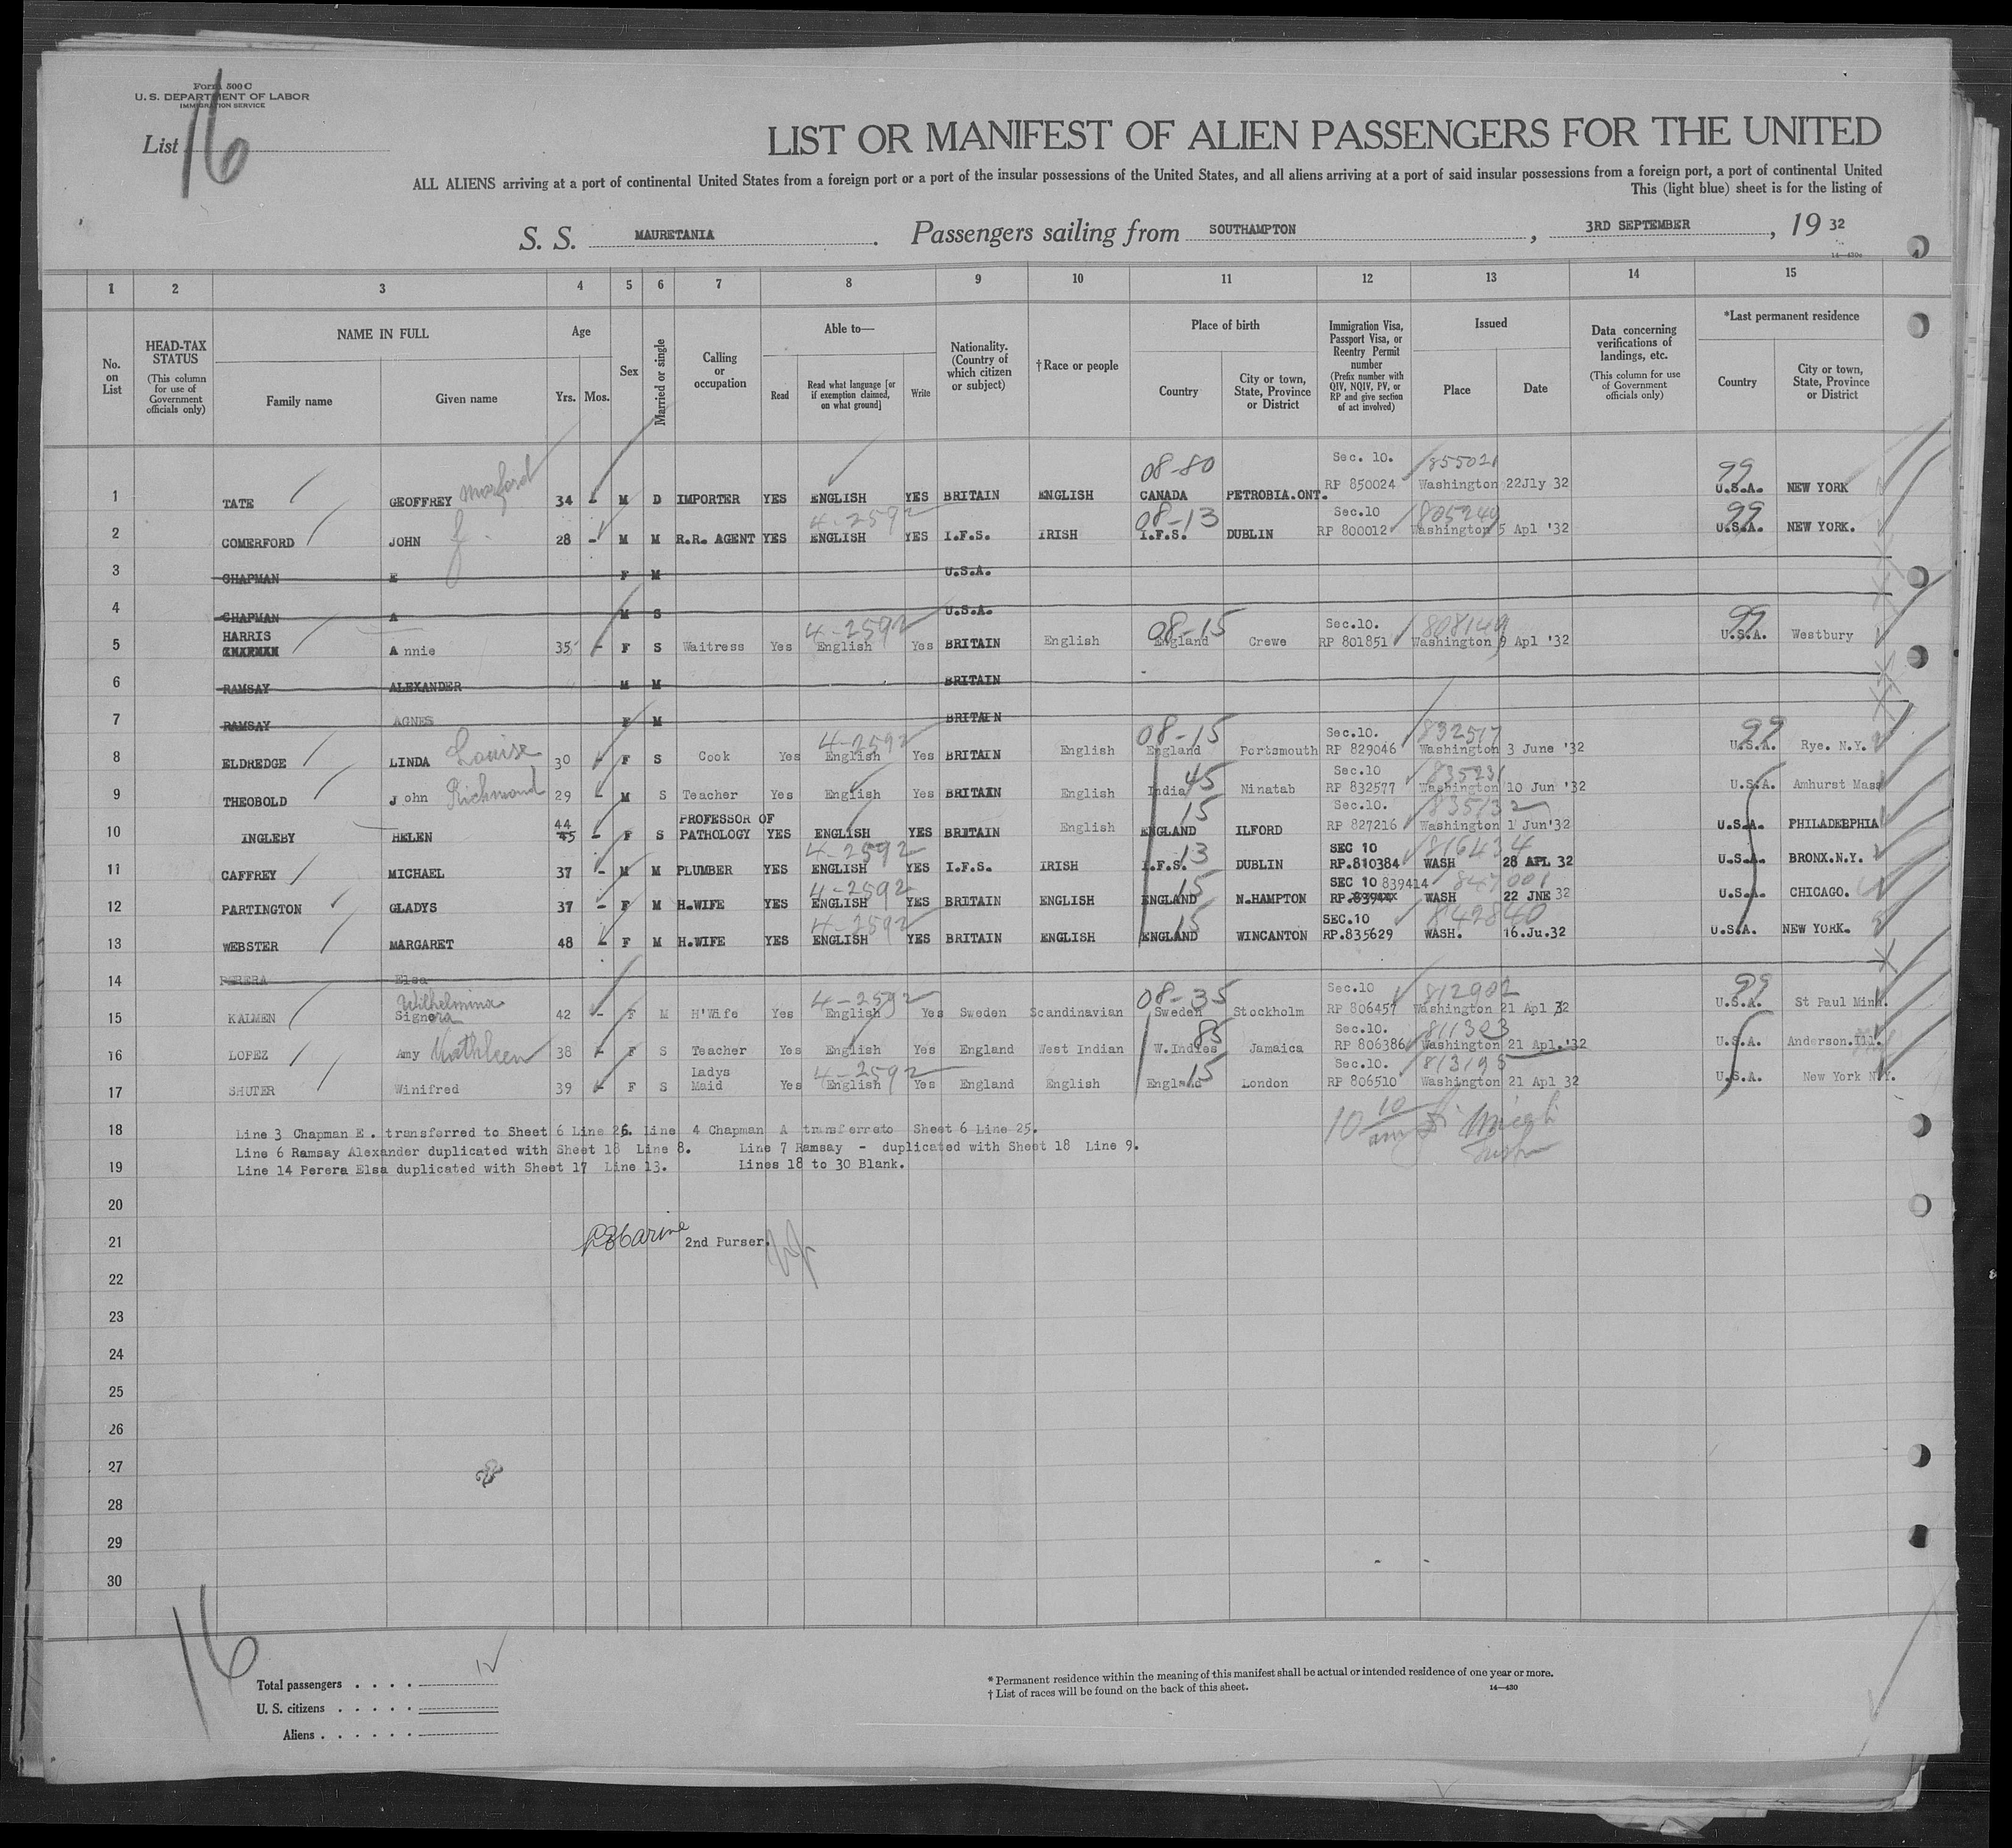 Form 500 C
U. S. DEPARTMENT OF LABOR
IMMIGRATION SERVICE
List 16
LIST OR MANIFEST OF ALIEN PASSENGERS FOR THE UNITED
ALL ALIENS arriving at a port of continental United States from a foreign port or a port of the insular possessions of the United States, and all aliens arriving at a port of said insular possessions from a foreign port, a port of continental United
This (light blue) sheet is for the listing of
S. S. MAURETANIA. Passengers sailing from SOUTHAMPTON, 3RD SEPTEMBER, 19 32
14—430c
1 2 3 4 5 6 7 8 9 10 11 12 13 14 15
No. on List
HEAD-TAX STATUS (This column for use of Government officials only)
NAME IN FULL Family name Given name
Age Yrs. Mos.
Sex
Married or single
Calling or occupation
Able to— Read Read what language [or if exemption claimed, on what ground] Write
Nationality. (Country of which citizen or subject)
† Race or people
Place of birth Country City or town, State, Province or District
Immigration Visa, Passport Visa, or Reentry Permit number (Prefix number with QIV, NQIV, PV, or RP and give section of act involved)
Issued Place Date
Data concerning verifications of landings, etc. (This column for use of Government officials only)
*Last permanent residence Country City or town, State, Province or District
08-80 Sec. 10. 855021 99
1 TATE GEOFFREY 34 - M D IMPORTER YES ENGLISH YES BRITAIN ENGLISH CANADA PETROBIA.ONT. RP 850024 Washington 22Jly 32 U.S.A. NEW YORK
4-2592 08-13 Sec.10 805249 99
2 COMERFORD JOHN J. 28 - M M R.R. AGENT YES ENGLISH YES I.F.S. IRISH I.F.S. DUBLIN RP 800012 Washington 5 Apl '32 U.S.A. NEW YORK.
3 CHAPMAN E F M U.S.A.
4 CHAPMAN A M S U.S.A.
HARRIS 4-2592 08-15 Sec.10. 808149 99
5 CHAPMAN Annie 35 - F S Waitress Yes English Yes BRITAIN English England Crewe RP 801851 Washington 9 Apl '32 U.S.A. Westbury
6 RAMSAY ALEXANDER M M BRITAIN
7 RAMSAY AGNES F M BRITAIN
4-2592 08-15 Sec.10. 832517 99
8 ELDREDGE LINDA Louise 30 F S Cook Yes English Yes BRITAIN English England Portsmouth RP 829046 Washington 3 June '32 U.S.A. Rye. N.Y.
45 Sec.10 835231
9 THEOBOLD John Richmond 29 - M S Teacher Yes English Yes BRITAIN English India Ninatab RP 832577 Washington 10 Jun '32 U.S.A. Amhurst Mass
44 PROFESSOR OF 15 Sec.10. 835132
10 INGLEBY HELEN 45 - F S PATHOLOGY YES ENGLISH YES BRITAIN English ENGLAND ILFORD RP 827216 Washington 1 Jun'32 U.S.A. PHILADEPHIA
4-2592 13 SEC 10 816434
11 CAFFREY MICHAEL 37 - M M PLUMBER YES ENGLISH YES I.F.S. IRISH I.F.S. DUBLIN RP.810384 WASH 28 APL 32 U.S.A. BRONX.N.Y.
4-2592 15 SEC 10 839414 847001
12 PARTINGTON GLADYS 37 - F M H.WIFE YES ENGLISH YES BRITAIN ENGLISH ENGLAND N.HAMPTON RP. WASH 22 JNE 32 U.S.A. CHICAGO.
4-2592 15 SEC.10 842840
13 WEBSTER MARGARET 48 - F M H.WIFE YES ENGLISH YES BRITAIN ENGLISH ENGLAND WINCANTON RP.835629 WASH. 16.Ju.32 U.S.A. NEW YORK.
14 PERERA Elsa
Wilhelmina 4-2592 08-35 Sec.10 812902 99
15 KALMEN Signora 42 - F M H'Wife Yes English Yes Sweden Scandinavian Sweden Stockholm RP 806457 Washington 21 Apl 32 U.S.A. St Paul Minn.
85 Sec.10. 811323
16 LOPEZ Amy Kathleen 38 - F S Teacher Yes English Yes England West Indian W.Indies Jamaica RP 806386 Washington 21 Apl.'32 U.S.A. Anderson.Ill.
Ladys 4-2592 15 Sec.10. 813195
17 SHUTER Winifred 39 - F S Maid Yes English Yes England English England London RP 806510 Washington 21 Apl 32 U.S.A. New York N.Y.
18 Line 3 Chapman E. transferred to Sheet 6 Line 26. line 4 Chapman A transferreto Sheet 6 Line 25.
Line 6 Ramsay Alexander duplicated with Sheet 18 Line 8. Line 7 Ramsay - duplicated with Sheet 18 Line 9.
19 Line 14 Perera Elsa duplicated with Sheet 17 Line 13. Lines 18 to 30 Blank.
20
21 2nd Purser.
22
23
24
25
26
27
28
29
30
16
Total passengers . . . .
U. S. citizens . . . . .
Aliens . . . . . .
* Permanent residence within the meaning of this manifest shall be actual or intended residence of one year or more.
† List of races will be found on the back of this sheet.
14—430